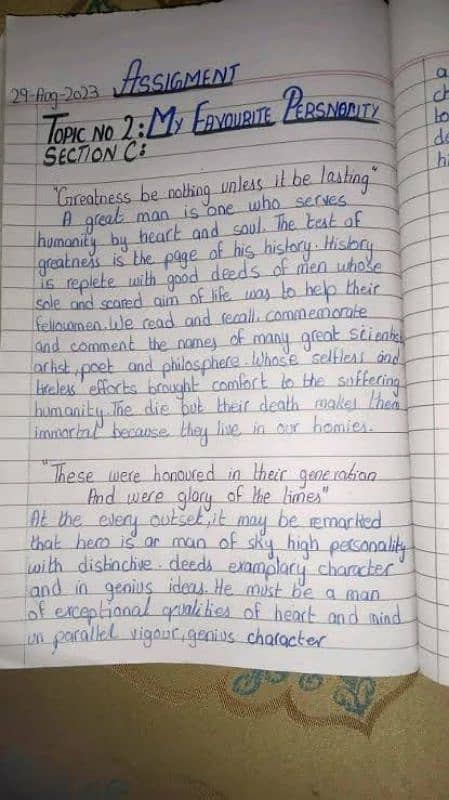 ASSIGMENT
29-Aug-2023
TOPIC NO 2: MY FAVOURITE PERSNALITY
SECTION C:
"Greatness be nothing unless it be lasting"
A great man is one who serves
humanity by heart and soul. The test of
greatness is the page of his history. History
is replete with good deeds of men whose
sole and scared aim of life was to help their
fellowmen. We read and recall, commemorate
and comment the names of many great scientist
artist, poet and philosphere. Whose selfless and
tireless efforts brought comfort to the suffering
humanity. The die but their death makes them
immortal because they live in our homies.
"These were honoured in their generation
And were glory of the times"
At the every outset, it may be remarked
that hero is ar man of sky high personality
with distinctive deeds examplary character
and in genius ideas. He must be a man
of exceptional qualities of heart and mind
un parallel vigour, genius character